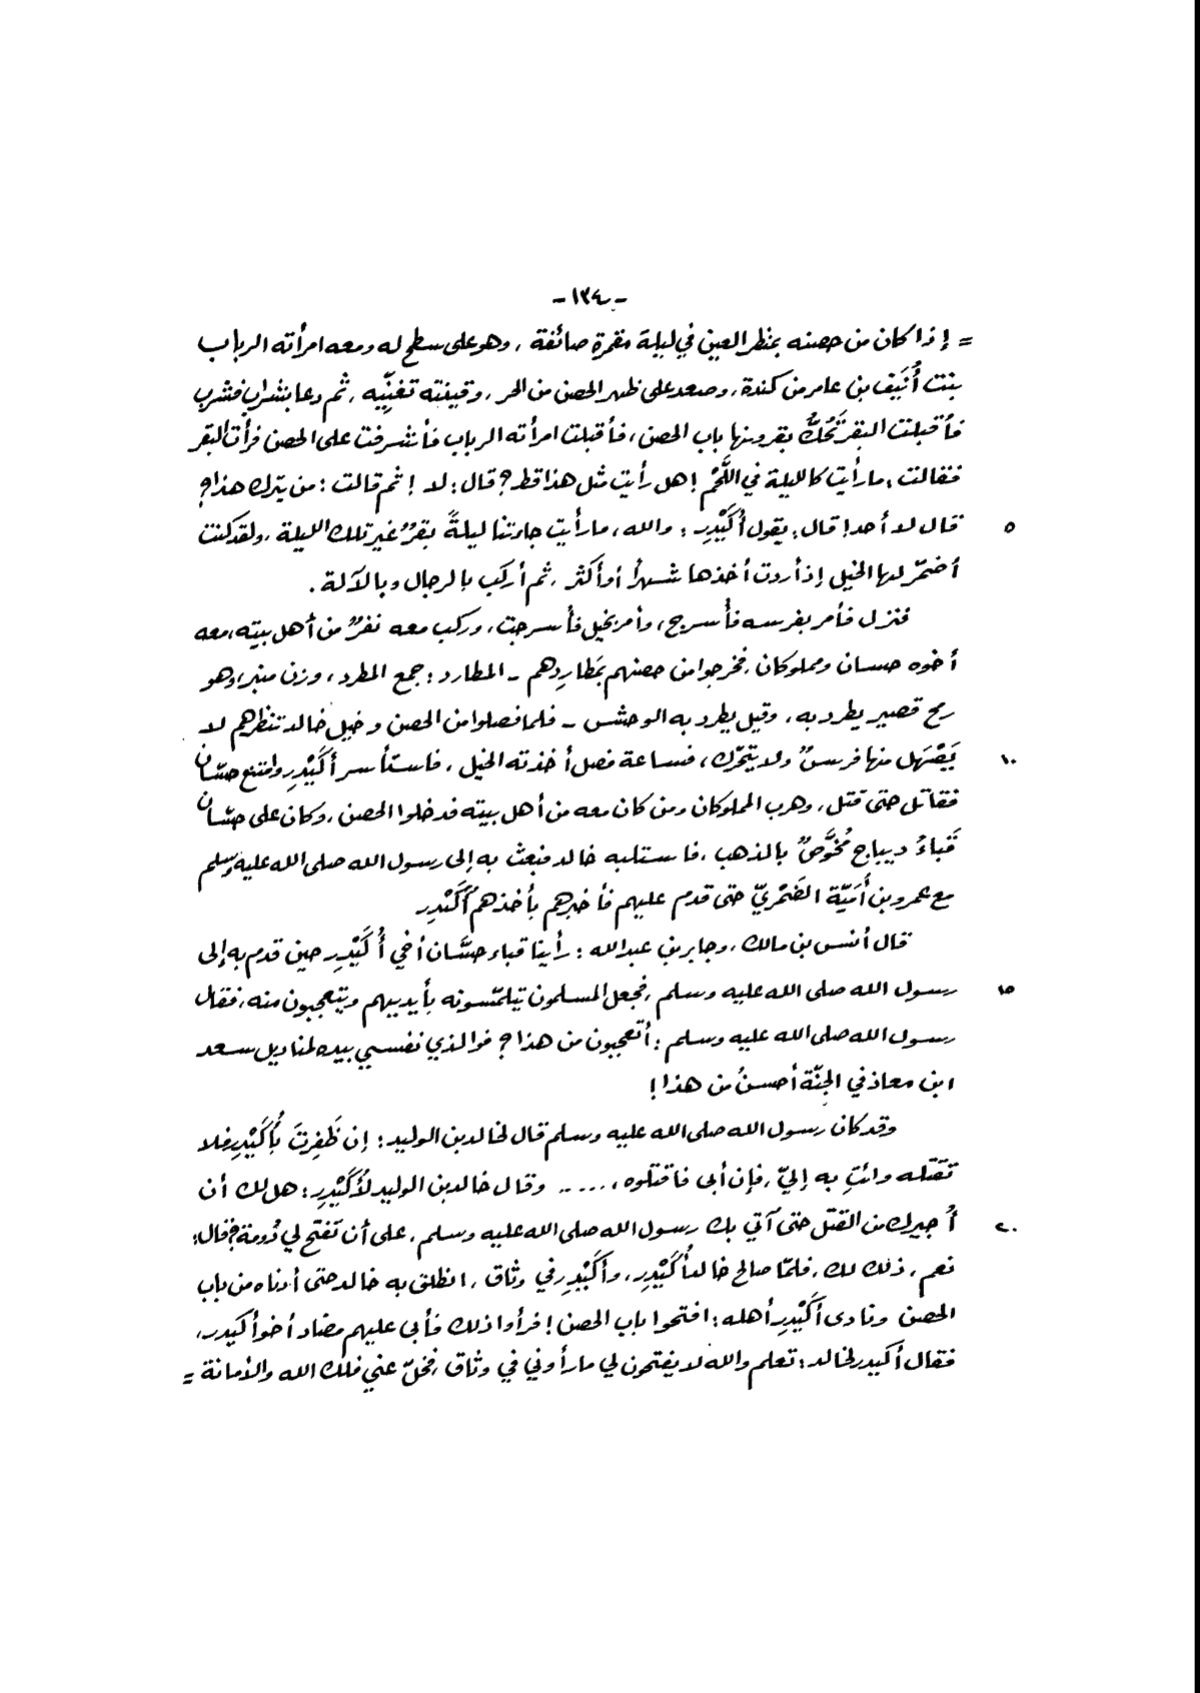 -١٣٤-
= إذا كان من حصنه بمنظر العين في ليلة مقمرة صائفة، وهو على سطح له ومعه امرأته الرباب
بنت أُنَيف بن عامر من كندة، وصعد على ظهر الحصن من الحر، وقينته تغنّيه، ثم دعا بشراب فشرب
فأقبلت البقر تَحُكُّ بقرونها باب الحصن، فأقبلت امرأته الرباب فأشرفت على الحصن فرأت البقر
فقالت: ما رأيت كالليلة في اللَّحْم! هل رأيت مثل هذا قط؟ قال: لا! ثم قالت: من يترك هذا؟
٥ قال لا أحد! قال: يقول أُكَيْدِر: والله، ما رأيت جاءتنا ليلةً بقرٌ غير تلك الليلة، ولقد كنت
أضمّر لها الخيل إذ أردت أخذها شهراً أو أكثر، ثم أركب بالرجال وبالآلة.
فنزل فأمر بفرسه فأُسرج، وأمر بخيل فأسرجت، وركب معه نفرٌ من أهل بيته، معه
أخوه حسان ومملوكان، فخرجوا من حصنهم بمَطارِدهم - المطارد: جمع المطرد، وزن منبر، وهو
رمح قصير يطرد به، وقيل يطرد به الوحش - فلما فصلوا من الحصن وخيل خالد تنظرهم لا
١٠ يَصْهَل منها فرسٌ ولا يتحرّك، فساعة فصل أخذته الخيل، فاستأسر أُكَيْدِر وامتنع حسّان
فقاتل حتى قتل، وهرب المملوكان ومن كان معه من أهل بيته فدخلوا الحصن، وكان على حسّان
قَباءُ ديباج مُخَوَّصٌ بالذهب، فاستلبه خالد فبعث به إلى رسول الله صلى الله عليه وسلم
مع عمرو بن أُمَيّة الضَمْريّ حتى قدم عليهم فأخبرهم بأخذهم أُكَيْدِر
قال أنس بن مالك، وجابر بن عبدالله: رأينا قباء حسَّان أخي أُكَيْدِر حين قدم به إلى
١٥ رسول الله صلى الله عليه وسلم، فجعل المسلمون يتلمّسونه بأيديهم ويتعجبون منه، فقال
رسول الله صلى الله عليه وسلم: أتعجبون من هذا؟ فوالذي نفسي بيده لمناديل سعد
ابن معاذ في الجنّة أحسنُ من هذا!
وقد كان رسول الله صلى الله عليه وسلم قال لخالد بن الوليد: إن ظَفِرتَ بأُكَيْدِر فلا
تقتله وائتِ به إليّ، فإن أبى فاقتلوه، ..... وقال خالد بن الوليد لأُكَيْدِر: هل لك أن
٢٠ أُجيرك من القتل حتى آتي بك رسول الله صلى الله عليه وسلم، على أن تفتح لي دُومة؟ فقال:
نعم، ذلك لك، فلمّا صالح خالد أُكَيْدِر، وأُكَيْدِر في وثاق، انطلق به خالد حتى أدناه من باب
الحصن ونادى أُكَيْدِر أهله: افتحوا باب الحصن! فرأوا ذلك فأبى عليهم مضاد أخو أكيدر،
فقال أكيدر لخالد: تعلم والله لا يفتحون لي ما رأوني في وثاق، فخلّ عني فلك الله والأمانة =